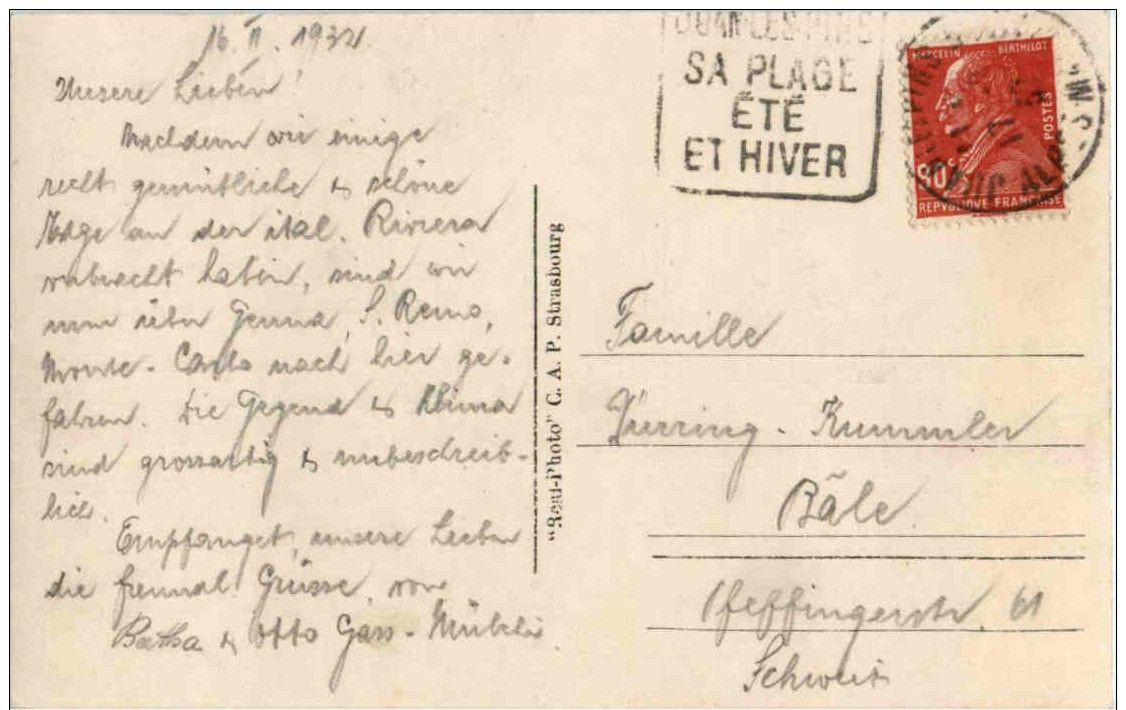 16. II. 1932.
Unsere Lieben!
Nachdem wir einige
recht gemütliche & schöne
Tage an der ital. Riviera
verbracht haben, sind wir
nun über Genua, S. Remo,
Monte-Carlo nach hier ge-
fahren. Die Gegend & Klima
sind grossartig & unbeschreib-
lich.
Empfanget, unsere Lieben
die freundl Grüsse, von
Bertha & Otto Gass-
"Real-Photo" C. A. P. Strasbourg
JUAN LES PINS
SA PLAGE
ÉTÉ
ET HIVER
MARCELIN BERTHELOT
POSTES
90c
REPVBLIQUE FRANÇAISE
Famille
Kummler
Bâle.
Pfeffingerstr. 61
Schweiz